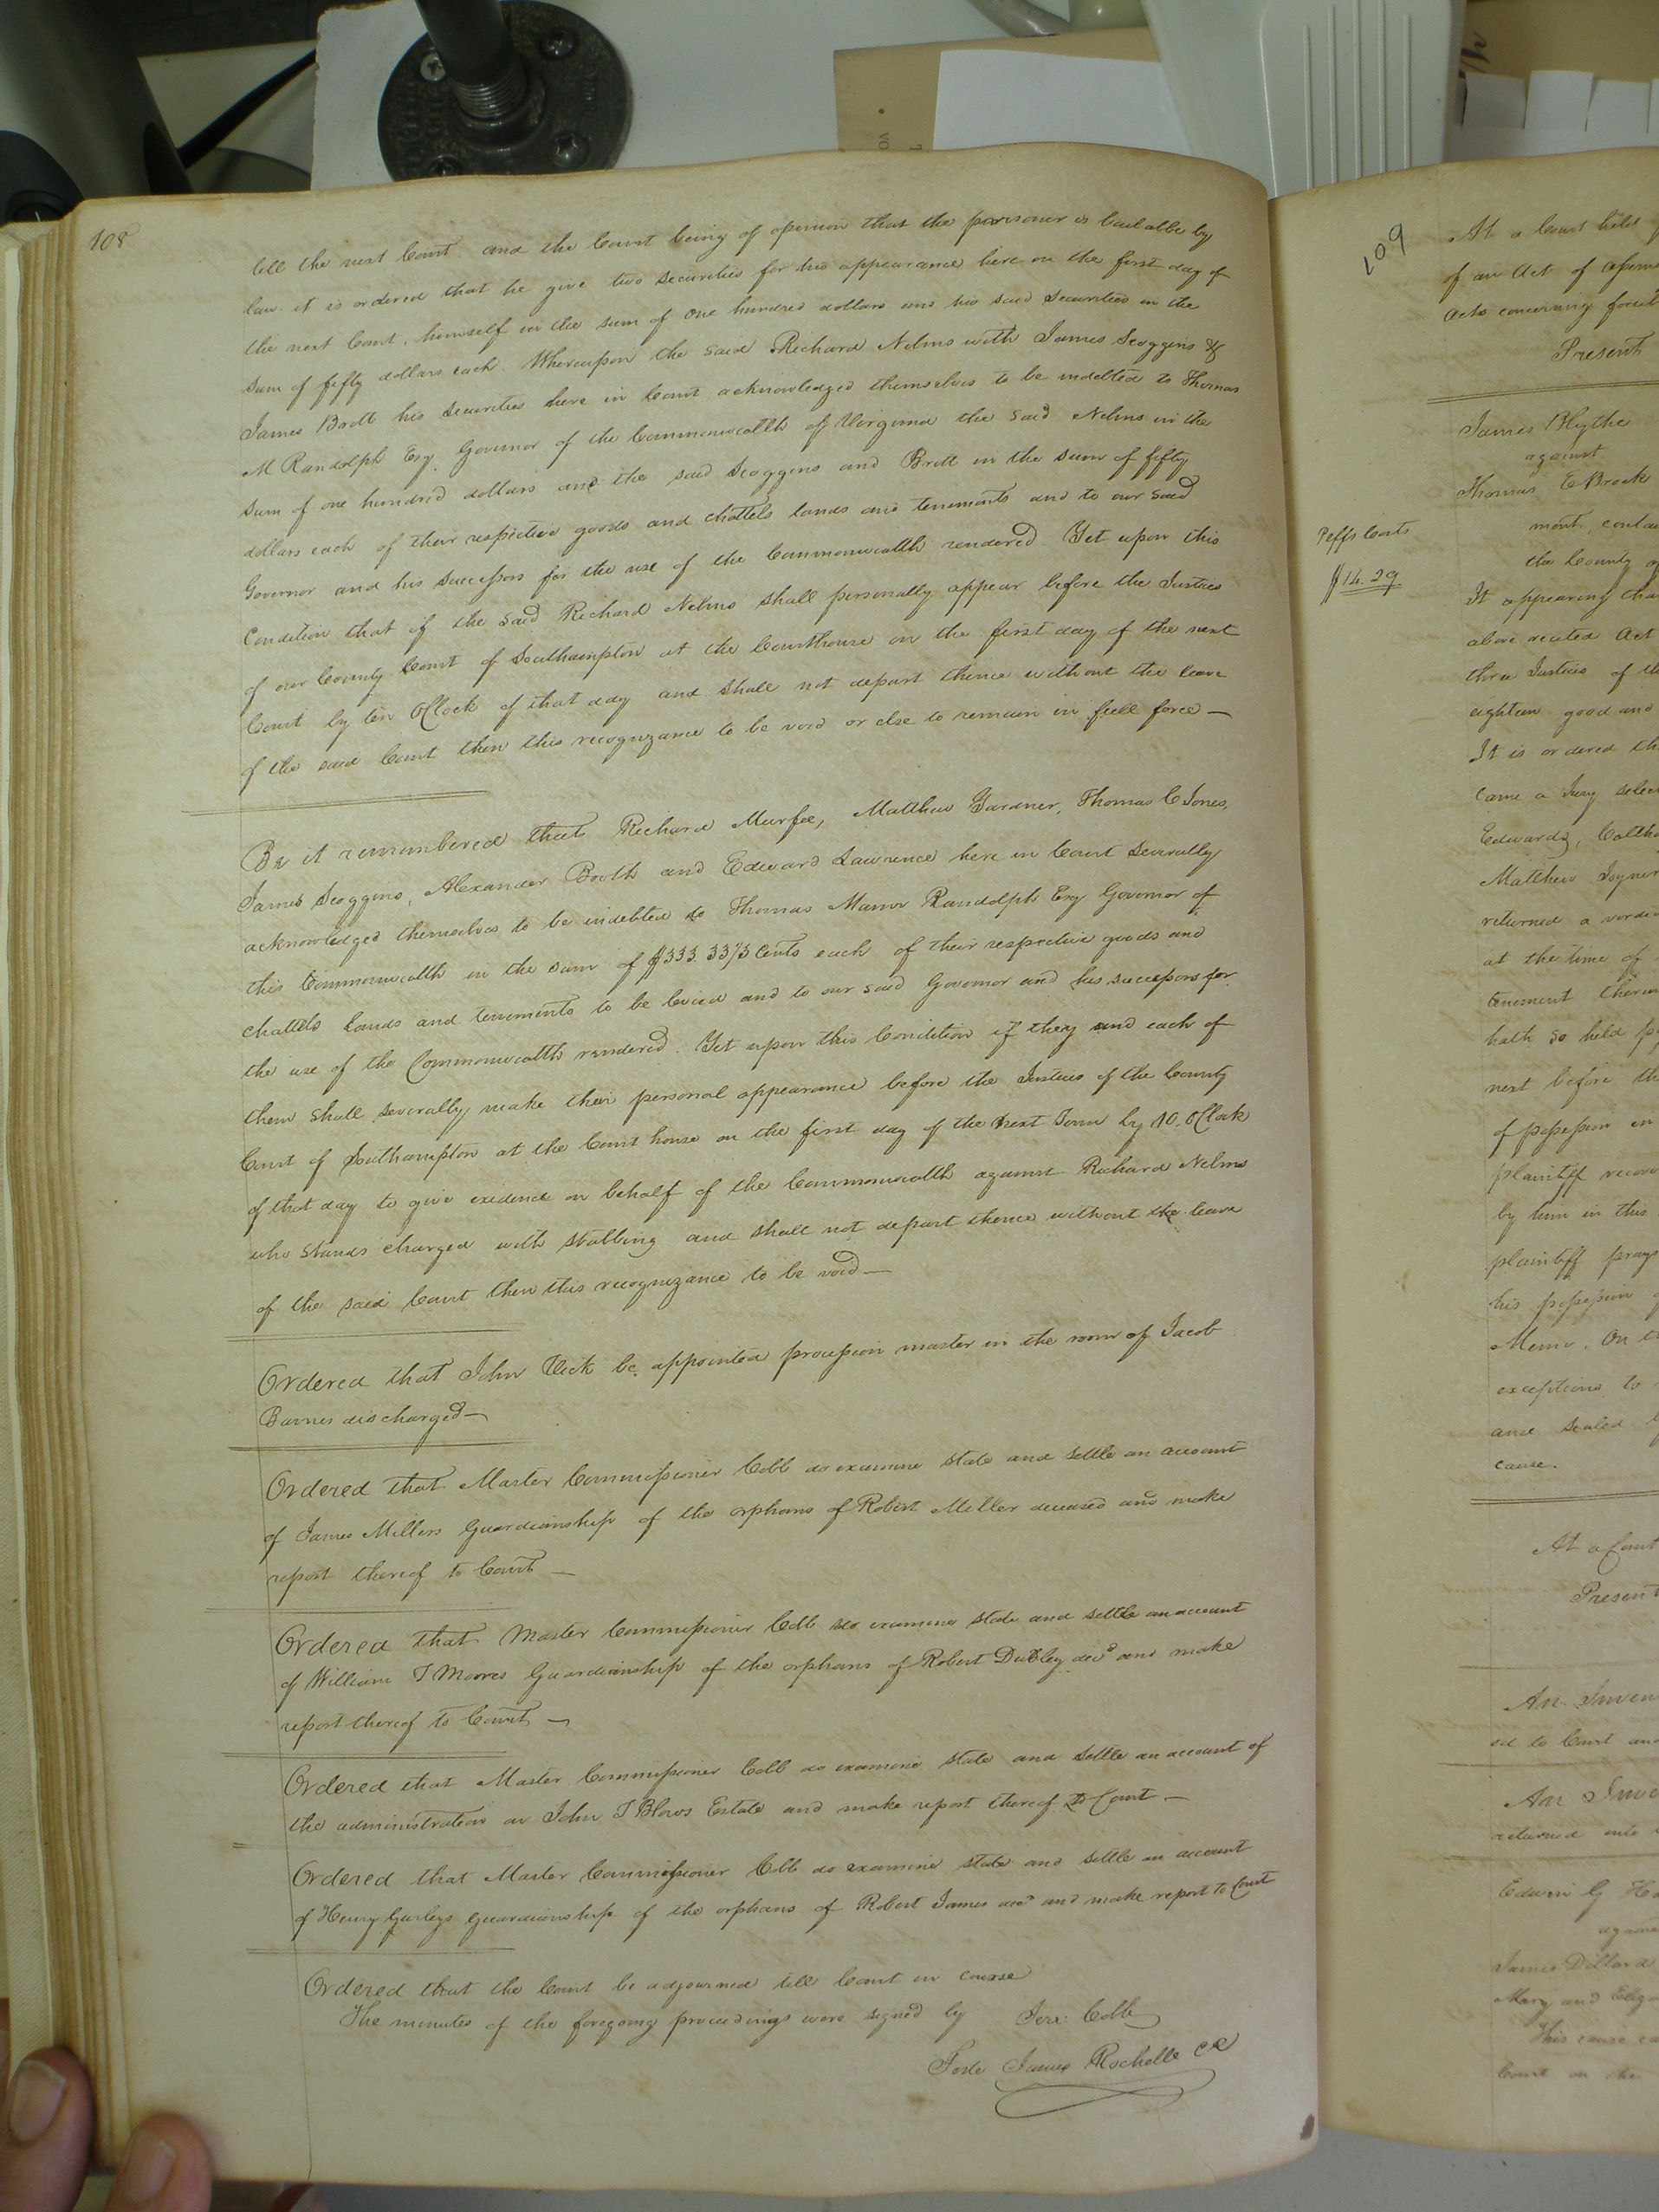 108
till the next Court and the Court being of opinion that the prisoner is bailable by
law it is ordered that he give two securities for his appearance here on the first day of
the next Court, himself in the sum of one hundred dollars and his said securities in the
sum of fifty dollars each. Whereupon the said Richard Nelms with James Scoggins &
James Brett his securities here in Court acknowledged themselves to be indebted to Thomas
M Randolph Esq. Governor of the Commonwealth of Virginia the said Nelms in the
sum of one hundred dollars and the said Scoggins and Brett in the sum of fifty
dollars each of their respective goods and chattels lands and tenements and to our said
Governor and his successors for the use of the Commonwealth rendered Yet upon this
Condition that if the said Richard Nelms shall personally appear before the Justices
of our County Court of Southampton at the Courthouse on the first day of the next
Court by ten OClock of that day and shall not depart thence without the leave
of the said Court then this recognizance to be void or else to remain in full force —
Be it remembered that Richard Murfee, Matthew Gardner, Thomas C Jones,
James Scoggins, Alexander Booth and Edward Lawrence here in Court severally
acknowledged themselves to be indebted to Thomas Mann Randolph Esq Governor of
this Commonwealth in the sum of $333.33⅓ Cents each of their respective goods and
chattels Lands and tenements to be levied and to our said Governor and his successors for
the use of the Commonwealth rendered. Yet upon this Condition if they and each of
them shall severally make their personal appearance before the Justices of the County
Court of Southampton at the Court house on the first day of the next Term by 10. OClock
of that day to give evidence on behalf of the Commonwealth against Richard Nelms
who stands charged with stabbing and shall not depart thence without the leave
of the said Court then this recognizance to be void —
Ordered that John Vick be appointed procession master in the room of Jacob
Barnes discharged —
Ordered that Master Commissioner Cobb do examine state and settle an account
of James Millers Guardianship of the orphans of Robert Miller deceased and make
report thereof to Court —
Ordered that Master Commissioner Cobb do examine state and settle an account
of William T Moores Guardianship of the orphans of Robert Dudley decd and make
report thereof to Court —
Ordered that Master Commissioner Cobb do examine state and settle an account of
the administration on John T Blows Estate and make report thereof to Court —
Ordered that Master Commissioner Cobb do examine state and settle an account
of Henry Gurleys guardianship of the orphans of Robert James decd and make report to Court
Ordered that the Court be adjourned till Court in course
The minutes of the foregoing proceedings were signed by Jere: Cobb
Teste James Rochelle CC
109
At a Court held
of an Act of
Acts concerning
Present
James Blythe
against
Thomas E Brock
the County
Peffs Costs
$14.29.
It appearing that
above recited Act
three Justices of
eighteen good and
It is ordered
came a Jury
Edwards,
Matthew Joyner
returned a
at the time of
tenement
hath so held
next before
of possession
plaintiff
by him in this
plaintiff
his possession
Memo. On
exceptions to
and sealed
cause.
At a Court
Present
An
to Court and
An
returned into
Edwin G
James Dillard
Mary and
This cause
Court on the